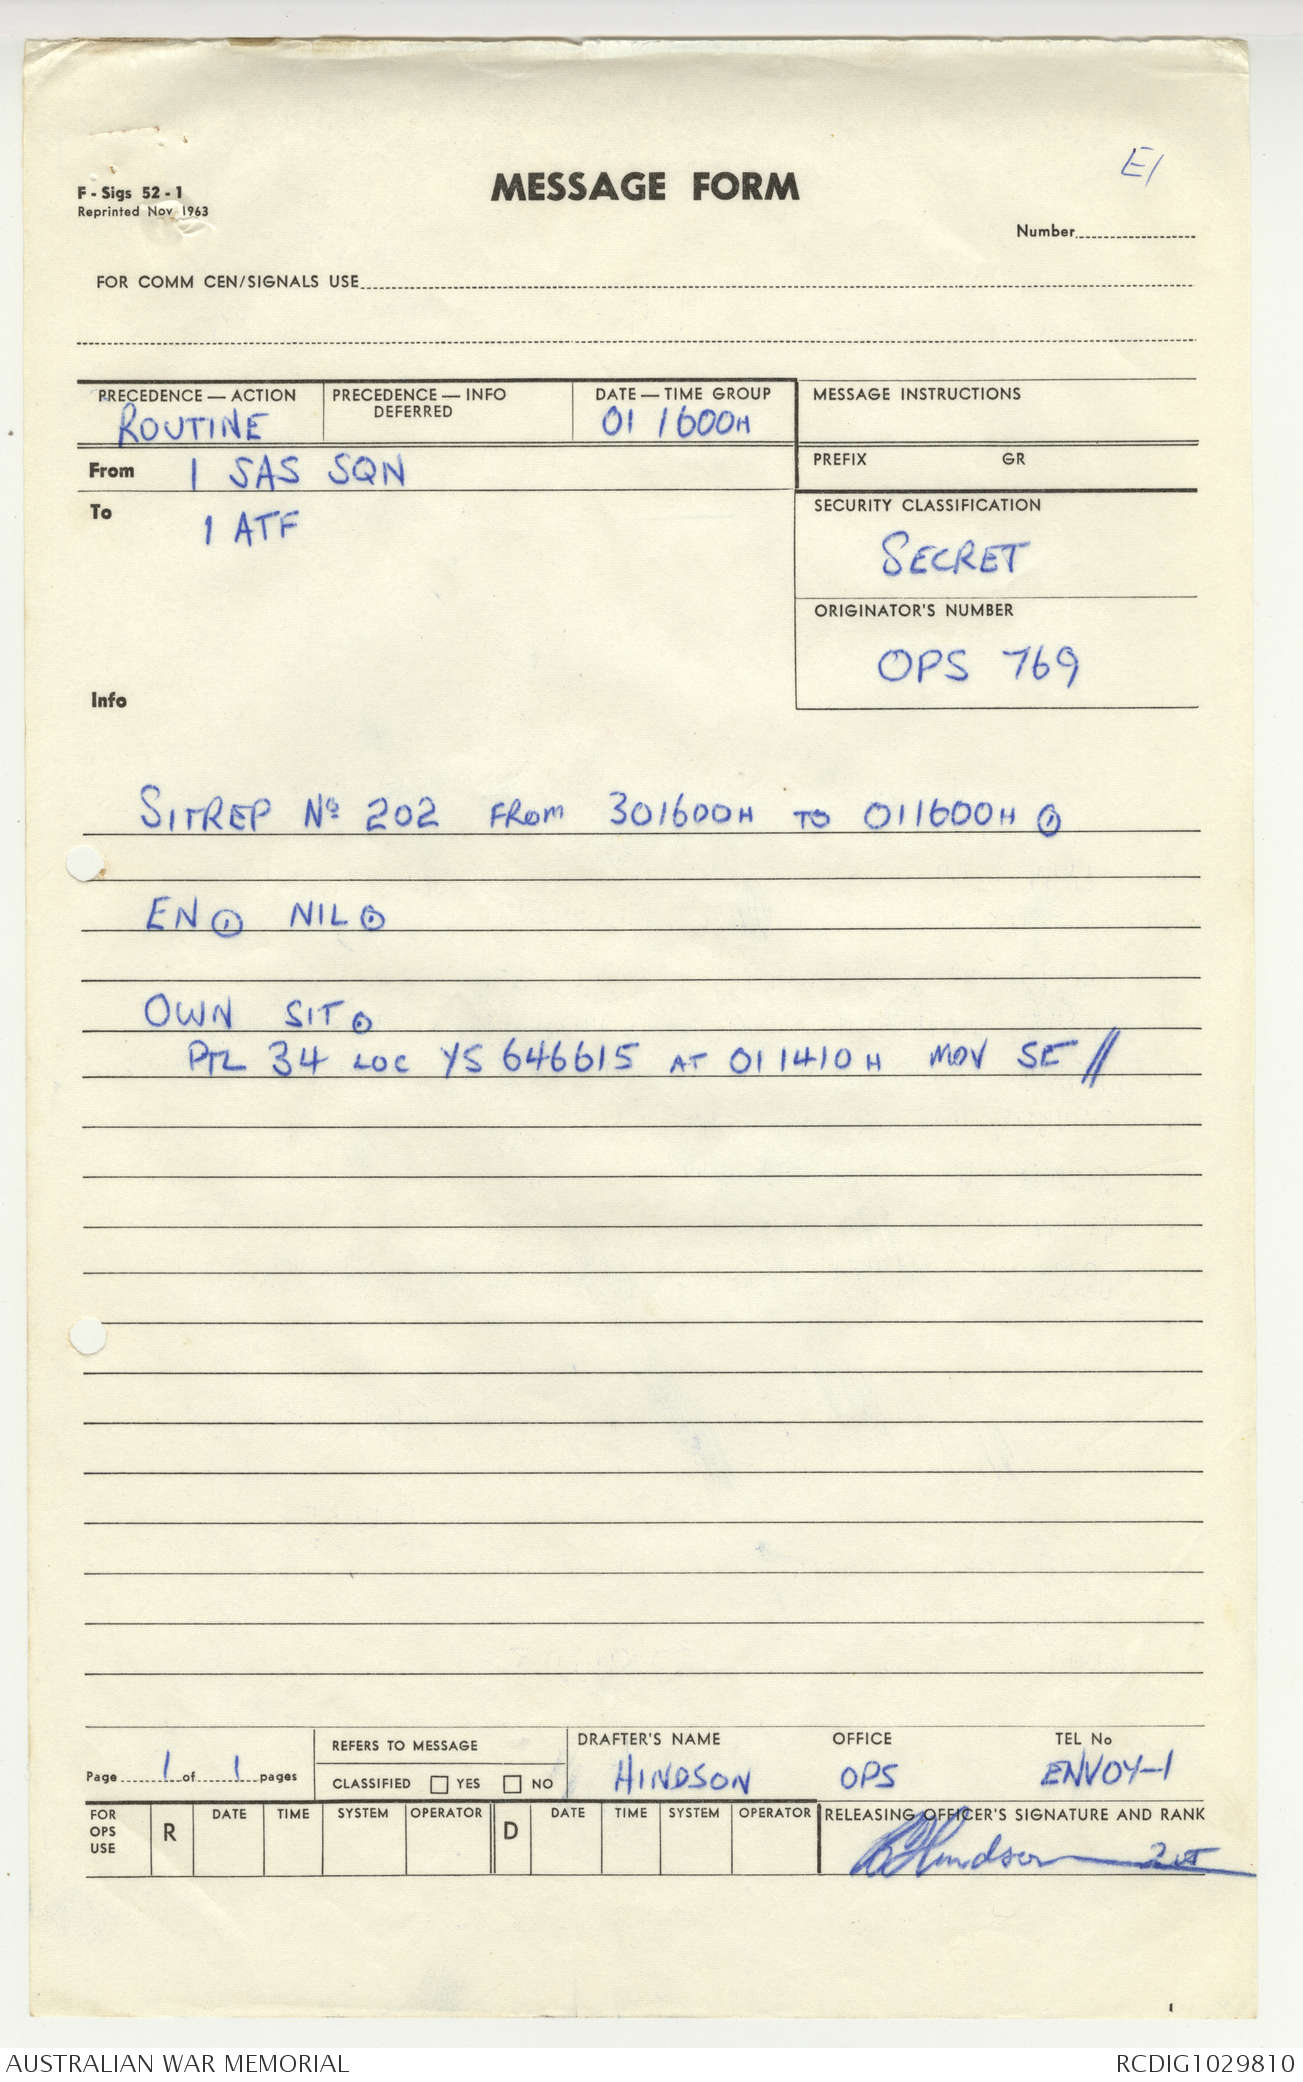 E1
F - Sigs 52 - 1
Reprinted Nov 1963
MESSAGE FORM
Number
FOR COMM CEN/SIGNALS USE
PRECEDENCE — ACTION
ROUTINE
PRECEDENCE — INFO
DEFERRED
DATE — TIME GROUP
011600H
MESSAGE INSTRUCTIONS
From 1 SAS SQN
PREFIX GR
To 1 ATF
SECURITY CLASSIFICATION
SECRET
ORIGINATOR'S NUMBER
OPS 769
Info
SITREP No 202 FROM 301600H TO 011600H ⊙
EN ⊙ NIL ⊙
OWN SIT ⊙
PTL 34 LOC YS 646615 AT 011410H MOV SE //
Page 1 of 1 pages
REFERS TO MESSAGE
CLASSIFIED YES NO
DRAFTER'S NAME OFFICE TEL No
HINDSON OPS ENVOY-1
FOR OPS USE R DATE TIME SYSTEM OPERATOR D DATE TIME SYSTEM OPERATOR RELEASING OFFICER'S SIGNATURE AND RANK
Hindson 2LT
AUSTRALIAN WAR MEMORIAL RCDIG1029810